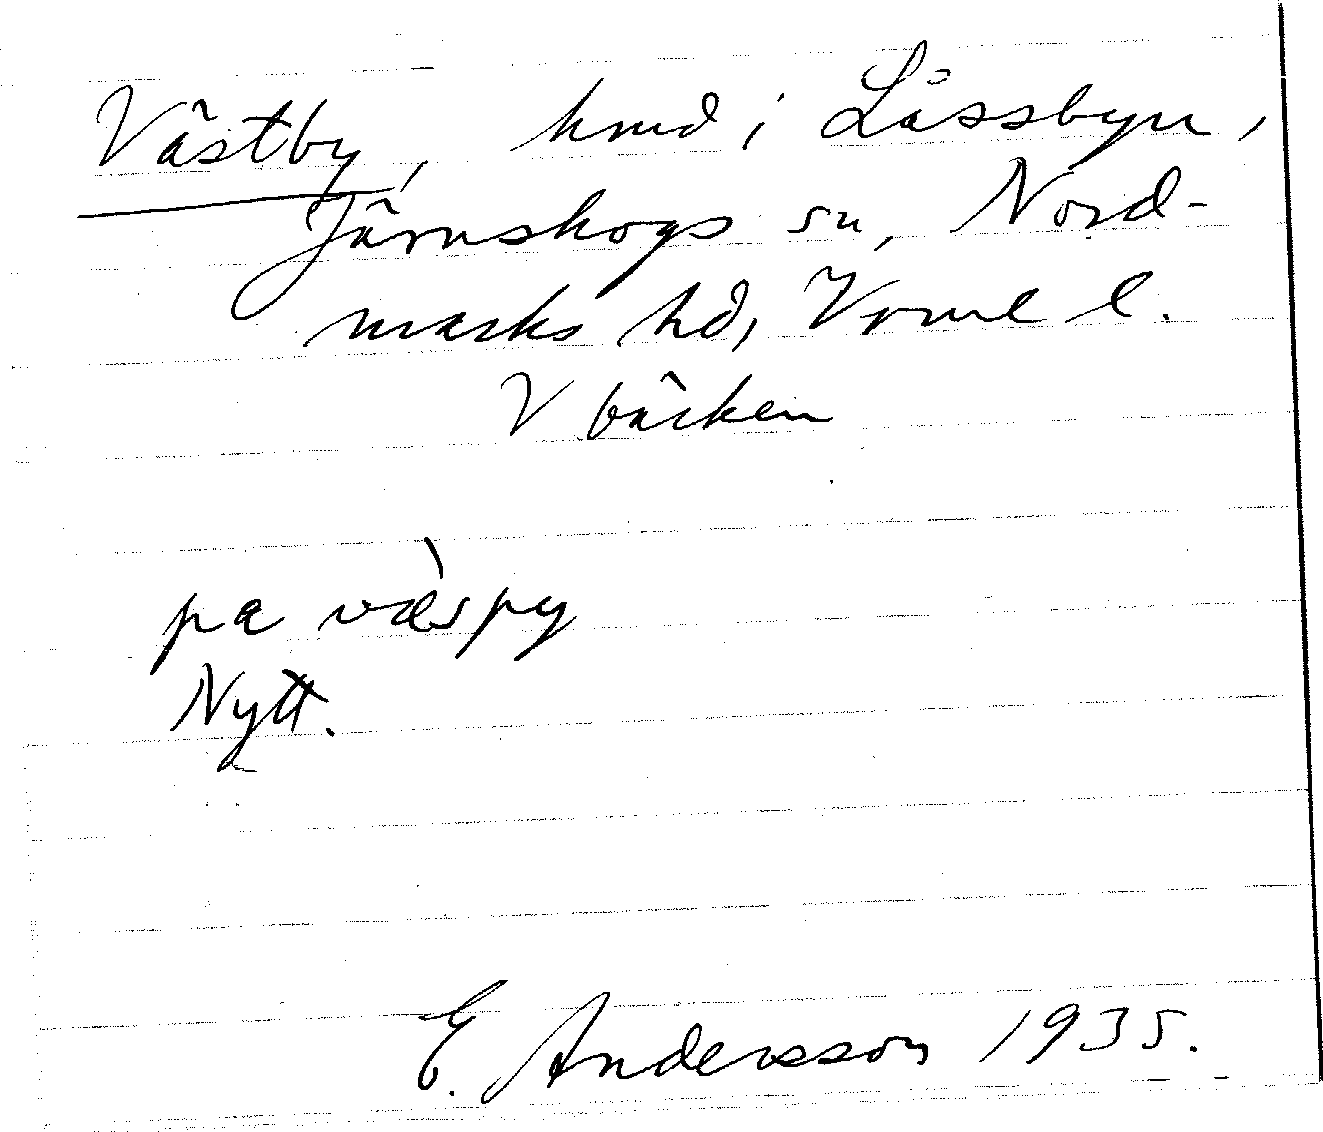 Västby, hmd i Låssbyn,
Järnskogs sn, Nord-
marks hd, Vrml l.
V bäcken
pa væ̀spy
Nytt.
E. Andersson 1935.